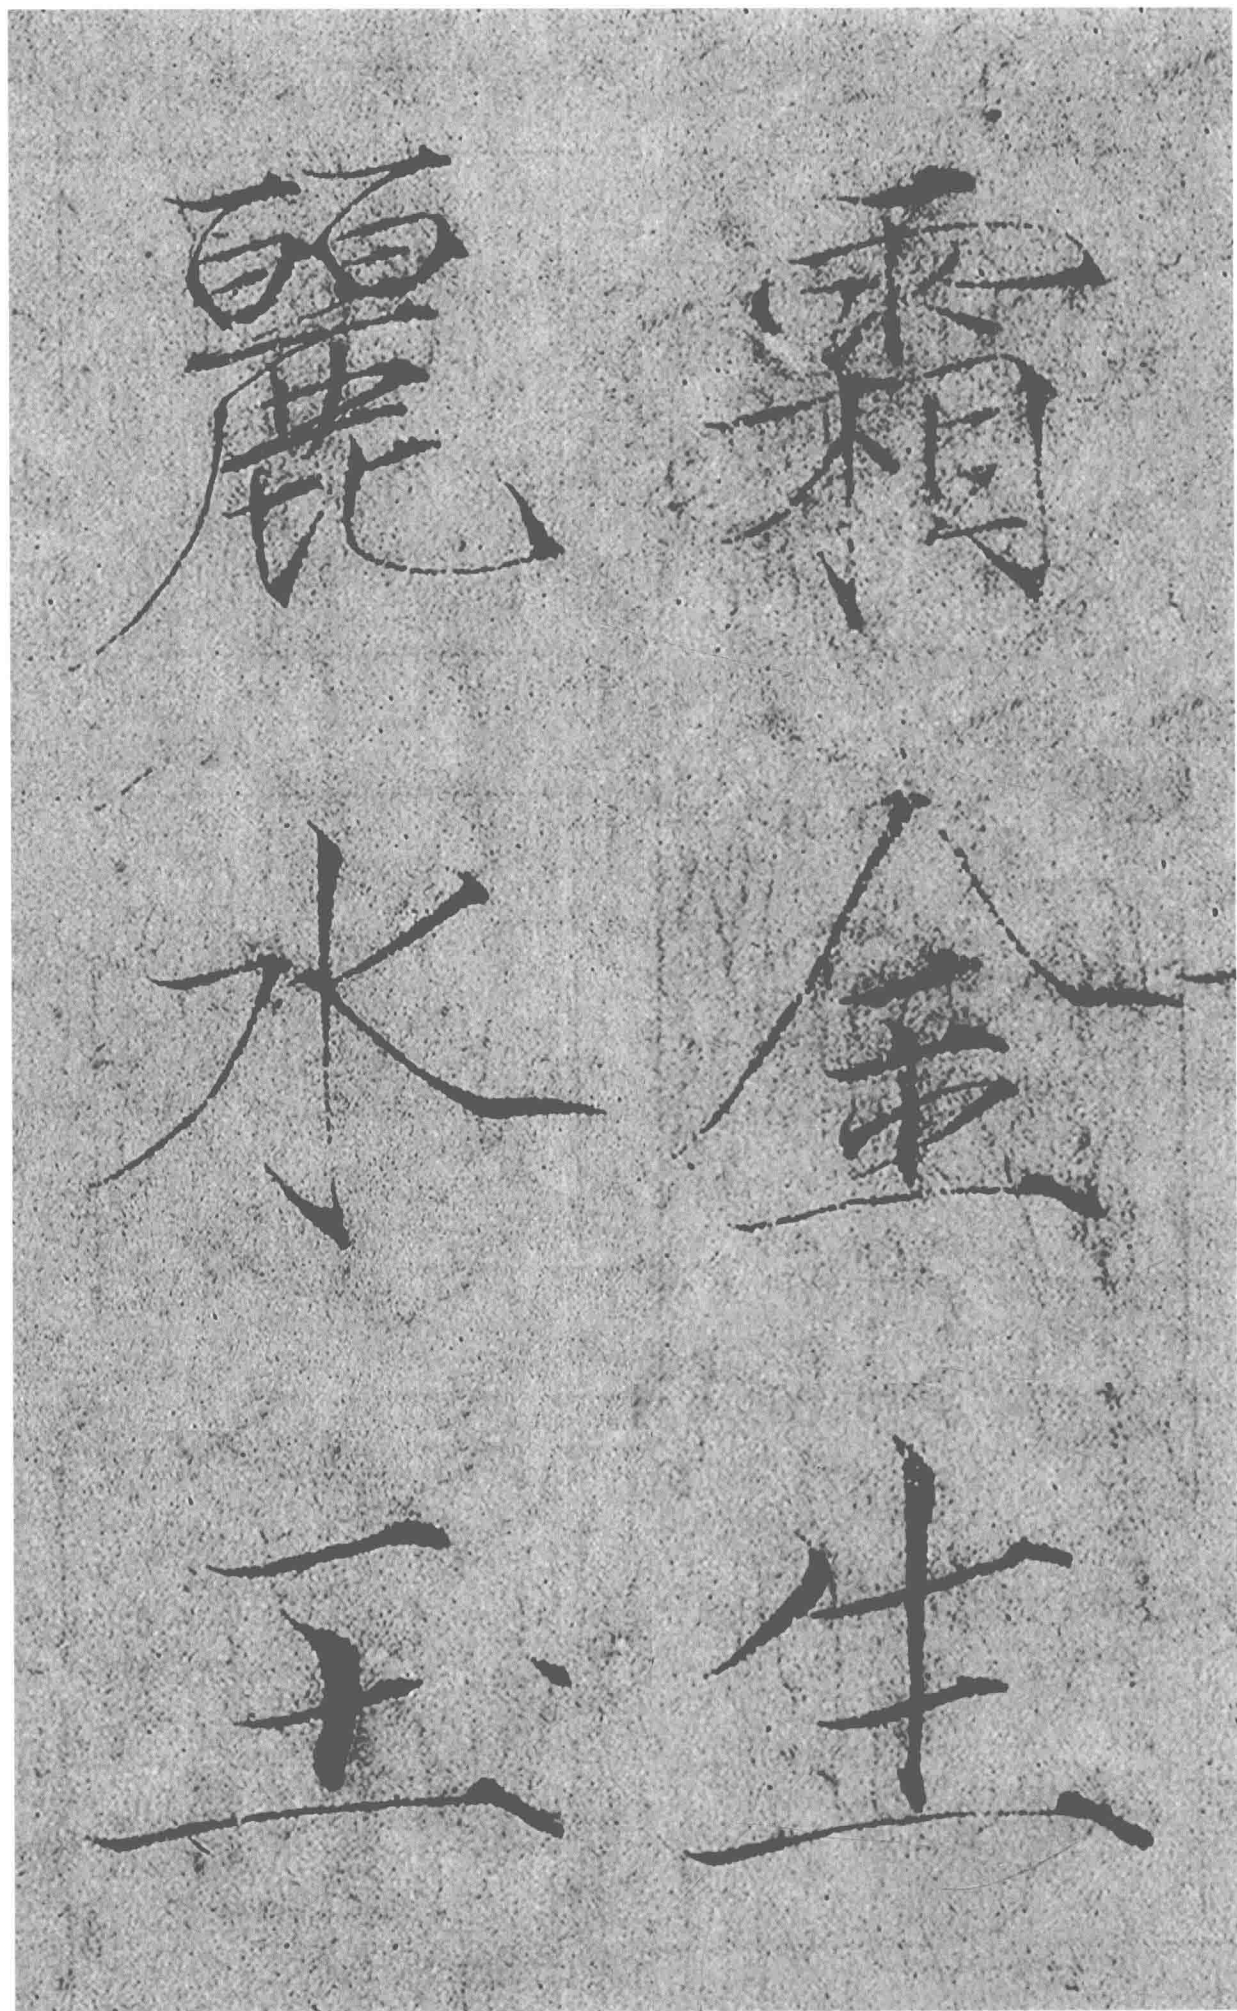 霜金生
麗水玉